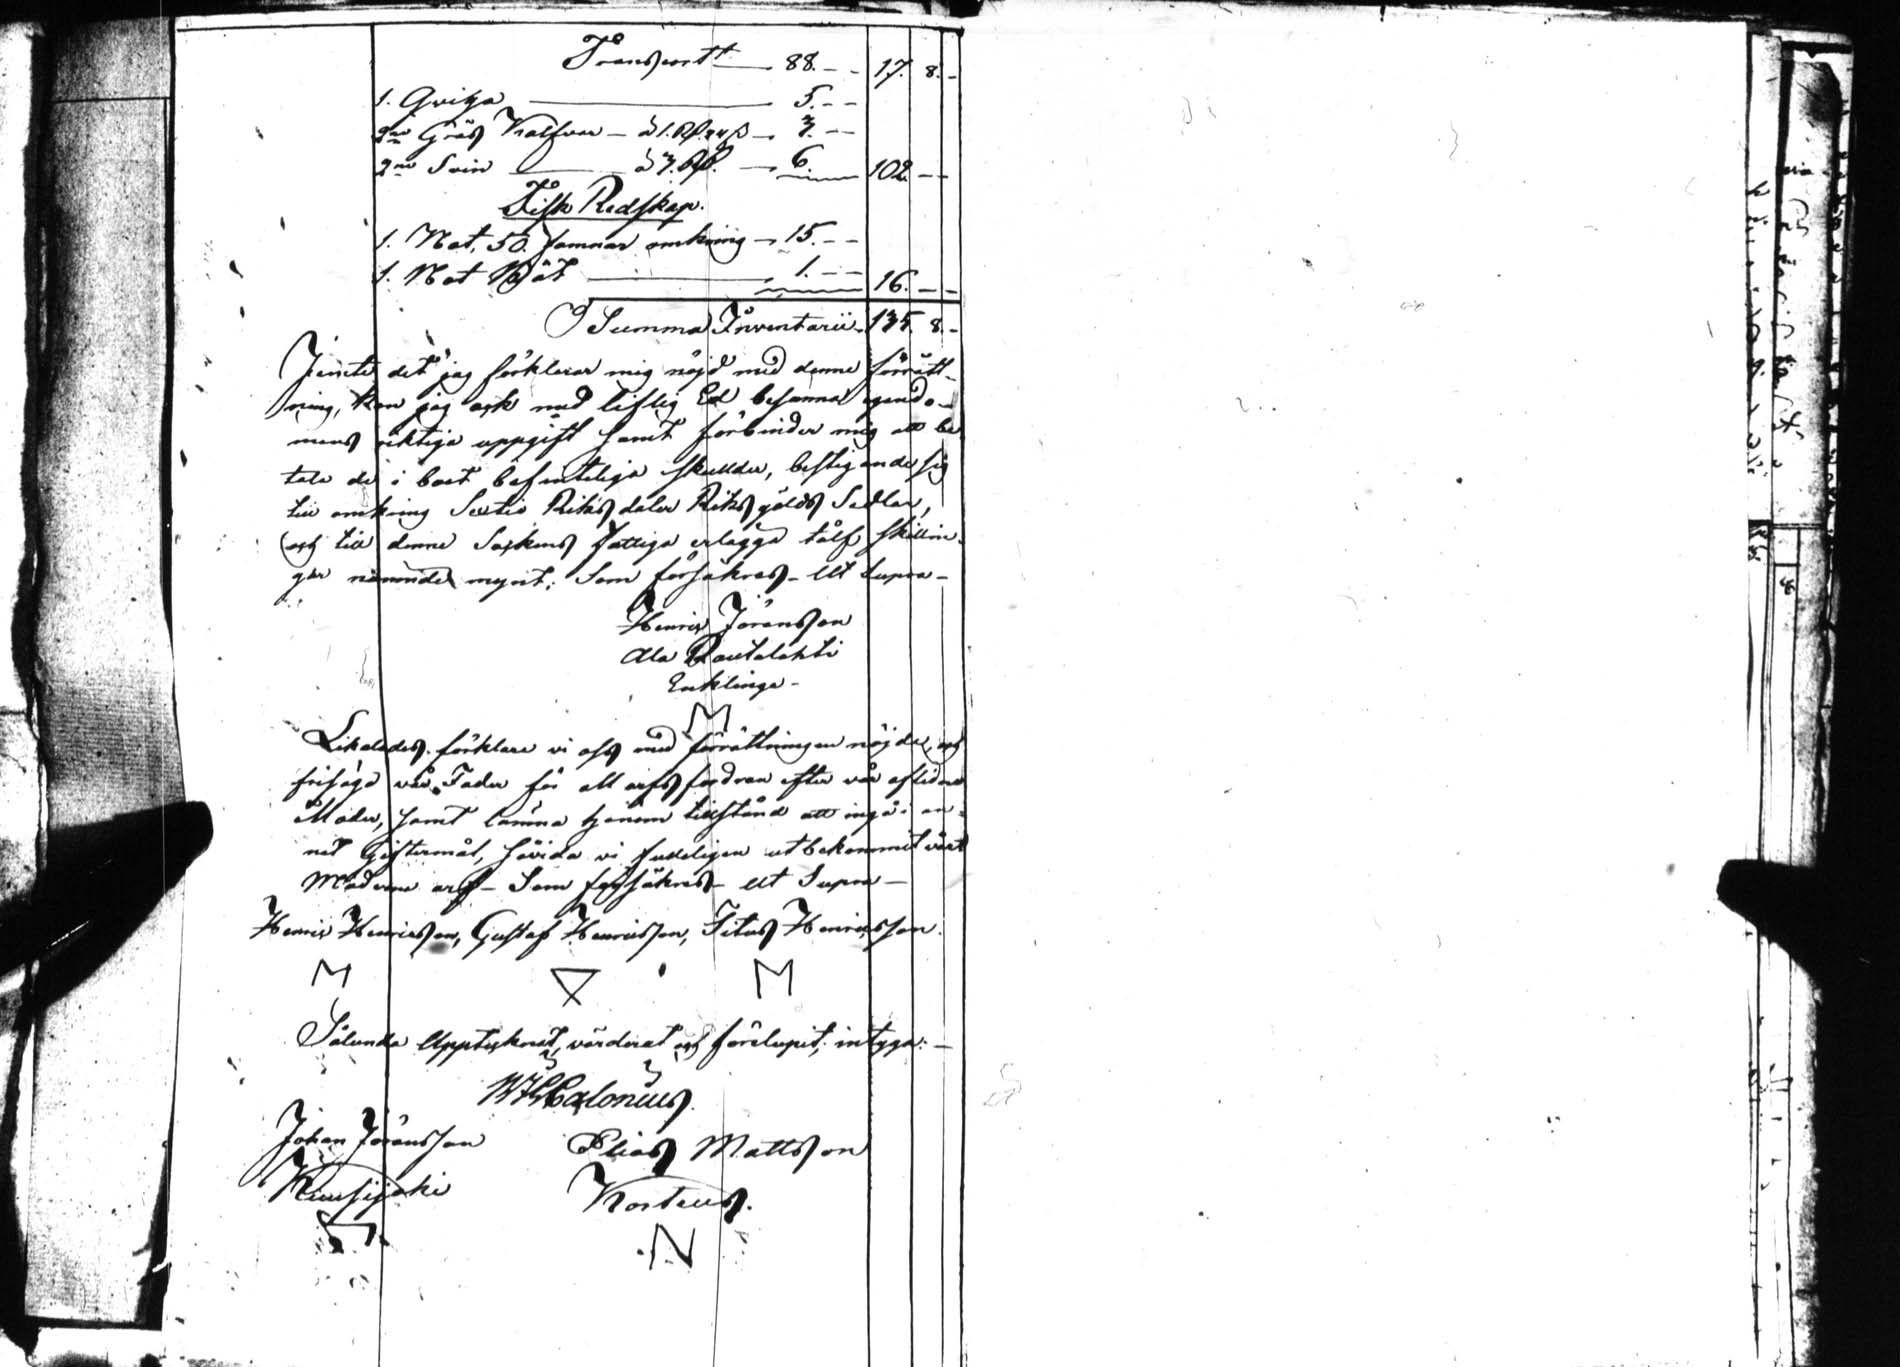 Transport — 88. - - 17. 8. -
1. Qviga — 5. - -
2ne Gräs Kalfvar — à 1. Rd. 24 ß — 3. - -
2ne Svin — à 3. Rd. — 6. 102. - -
Fisk Redskap.
1. Not, 50. famnar omkring — 15. - -
1. Not Båt — 1. - - 16. - -
Summa Inventarii. 135. 8. -
Jemte det jag förklarar mig nöjd med denne förrätt-
ning, kan jag ock med liflig Ed besanna egendo-
mens riktiga uppgift samt förbinder mig att be
tala de i boet befinteliga skulder, bestigande sig
till omkring Sextio Riksdaler Riksgälds Sedlar,
och till denne Sockens fattiga erlägga tolf skillin-
gar nämnde mynt; Som försäkras - Ut Supra -
Henric Jöransson
Ala Rautalahti
Enklinge -
M
Likaledes förklara vi oss med förrättningen nöjde, och
frisäga vår Fader för all arfs fordran efter vår aflidne
Moder, samt lämna honom tillstånd att ingå i an-
nat Giftermål, såvida vi fulleligen utbekommit vårt
Möderne arf - Som försäkras - Ut Supra -
Henric Henricsson, Gustaf Henricsson, Titus Henricsson.
M M
Sålunda Upptecknat, värderat och förelupit; intyga: -
Calonius.
Johan Jöransson Elias Mattsson
Kuusijoki Korteus.
N